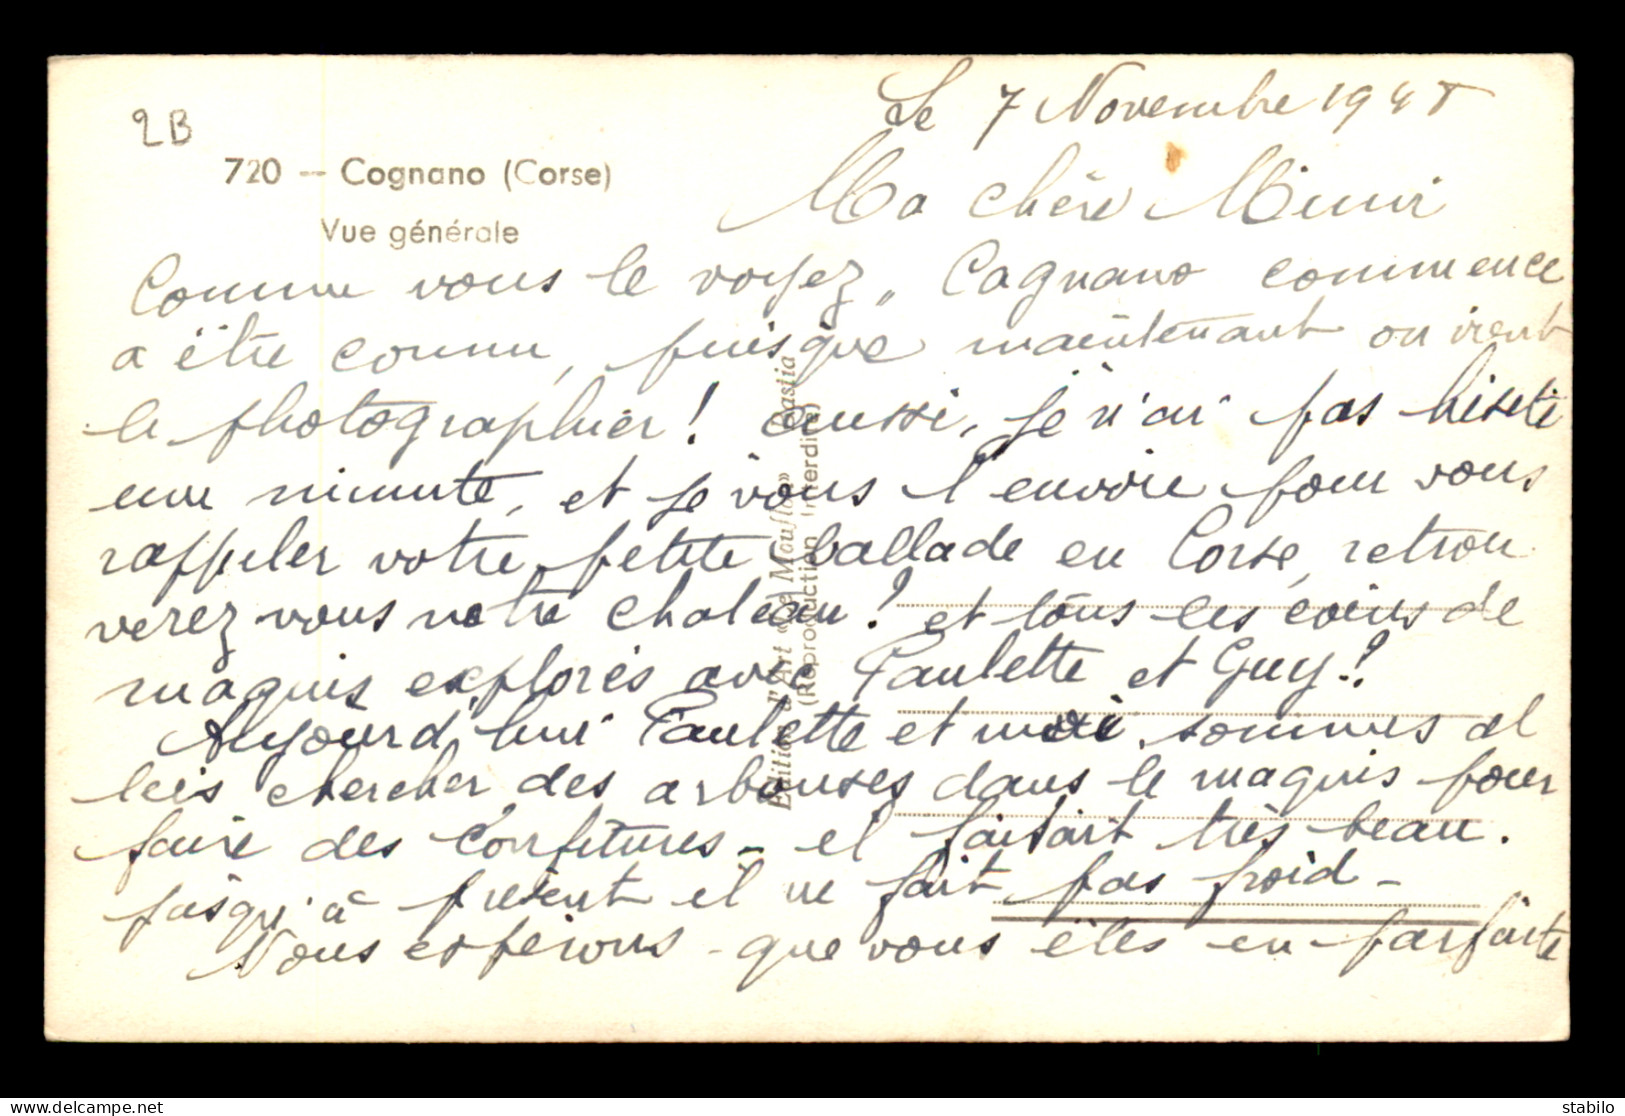 2B
720 — Cognano (Corse)
Vue générale
Le 7 Novembre 194
Ma chère Mimi
Comme vous le voyez, Cagnano commence
a être connu, puisque maintenant on vient
le photographier! aussi, je n'ai pas hésité
une minute, et je vous l'envoie pour vous
rappeler votre petite ballade en Corse, retrou
verez vous votre chateau? et tous les coins de
maquis explorés avec Paulette et Guy?
Aujourd'hui Paulette et moi, sommes al
lées chercher des arbouses dans le maquis pour
faire des confitures - il faisait très beau.
jusqu'à présent il ne fait pas froid -
Nous espérons que vous êtes en parfaite
Edition d'Art «Le Mouflon» Bastia
(Reproduction interdite)
stabilo